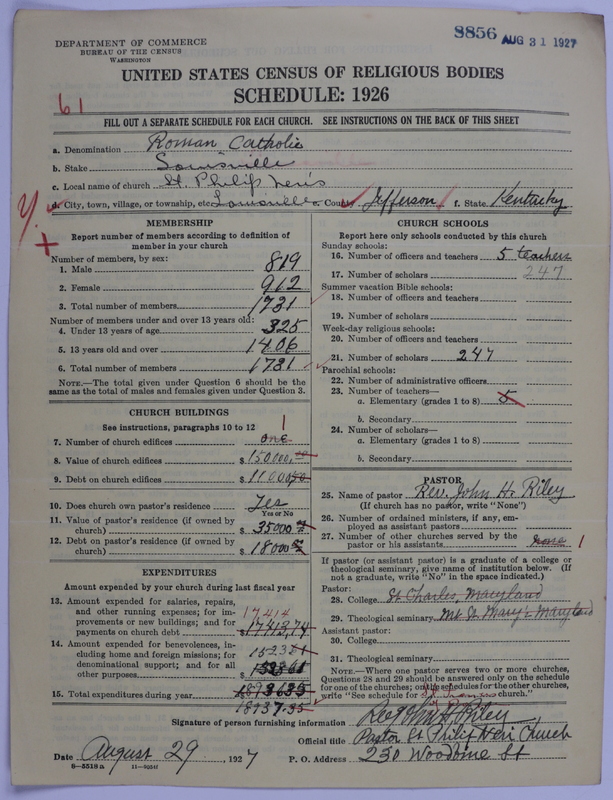 8856 AUG 31 1927
DEPARTMENT OF COMMERCE
BUREAU OF THE CENSUS
WASHINGTON
UNITED STATES CENSUS OF RELIGIOUS BODIES
SCHEDULE: 1926
61
FILL OUT A SEPARATE SCHEDULE FOR EACH CHURCH. SEE INSTRUCTIONS ON THE BACK OF THIS SHEET
a. Denomination Roman Catholic
b. Stake Louisville
c. Local name of church St. Philip Neri's
d. City, town, village, or township, etc. Louisville e. County Jefferson f. State Kentucky
MEMBERSHIP
Report number of members according to definition of
member in your church
Number of members, by sex:
1. Male 819
2. Female 912
3. Total number of members 1731
Number of members under and over 13 years old:
4. Under 13 years of age 325
5. 13 years old and over 1406
6. Total number of members 1731
NOTE.—The total given under Question 6 should be the
same as the total of males and females given under Question 3.
CHURCH BUILDINGS
See instructions, paragraphs 10 to 12
7. Number of church edifices one 1
8. Value of church edifices $ 150,000.00
9. Debt on church edifices $ 11000
10. Does church own pastor's residence? Yes
Yes or No
11. Value of pastor's residence (if owned by
church) $ 35000
12. Debt on pastor's residence (if owned by
church) $ 18000
EXPENDITURES
Amount expended by your church during last fiscal year
13. Amount expended for salaries, repairs,
and other running expenses; for im-
provements or new buildings; and for
payments on church debt $ 17413,74
17,414
14. Amount expended for benevolences, in-
cluding home and foreign missions; for
denominational support; and for all
other purposes
15. Total expenditures during year
18937.35
CHURCH SCHOOLS
Report here only schools conducted by this church
Sunday schools:
16. Number of officers and teachers 5 teachers
17. Number of scholars 247
Summer vacation Bible schools:
18. Number of officers and teachers
19. Number of scholars
Week-day religious schools:
20. Number of officers and teachers
21. Number of scholars 247
Parochial schools:
22. Number of administrative officers
23. Number of teachers—
a. Elementary (grades 1 to 8) 5
b. Secondary
24. Number of scholars—
a. Elementary (grades 1 to 8)
b. Secondary
PASTOR
25. Name of pastor Rev. John H. Riley
(If church has no pastor, write "None")
26. Number of ordained ministers, if any, em-
ployed as assistant pastors
27. Number of other churches served by the
pastor or his assistants none 1
If pastor (or assistant pastor) is a graduate of a college or
theological seminary, give name of institution below. (If
not a graduate, write "No" in the space indicated.)
Pastor:
28. College St Charles, Maryland
29. Theological seminary Mt St. Mary's Maryland
Assistant pastor:
30. College
31. Theological seminary
NOTE.—Where one pastor serves two or more churches,
Questions 28 and 29 should be answered only on the schedule
for one of the churches; on the schedules for the other churches,
write "See schedule for church."
Signature of person furnishing information Rev John H. Riley
Official title Pastor St Philip Neri Church
Date August 29, 1927 P. O. Address 230 Woodbine St
8—5518a 11—9054f